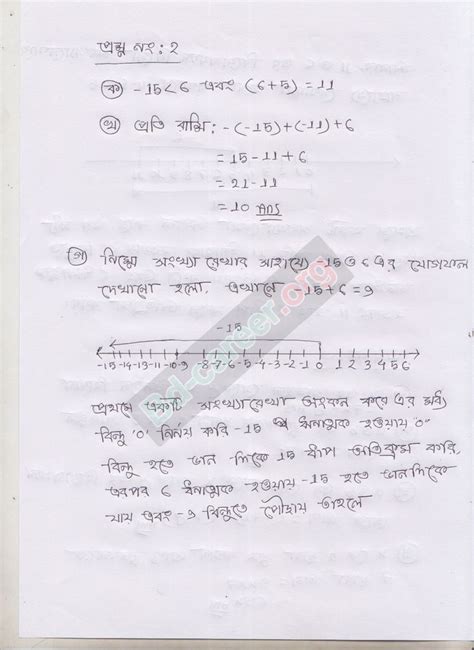 প্রশ্ন নং: ২
ক) -15<6 এবং (6+5) = 11
খ) প্রতি রাশি: -(-15)+(-11)+6
= 15-11+6
= 21-11
= 10 Ans
গ) নিম্নে সংখ্যা রেখার সাহায্যে -15 ও 6 এর যোগফল
দেখানো হলো. এখানে -15+6 = 9
-15
-15 -14 -13 -12 -11 -10 -9 -8 -7 -6 -5 -4 -3 -2 -1 0 1 2 3 4 5 6
প্রথমে একটি সংখ্যারেখা অংকন করে এর মধ্য
বিন্দু '0' নির্নয় করি -15 ঋনাত্মক হওয়ায় "0"
বিন্দু হতে ডান দিকে 15 ধাঁপ অতিক্রম করি,
এরপর 6 ধনাত্মক হওয়ায় -15 হতে ডানদিকে
যায় এবং -9 বিন্দুতে পৌছায় তাহলে
Bd-career.org